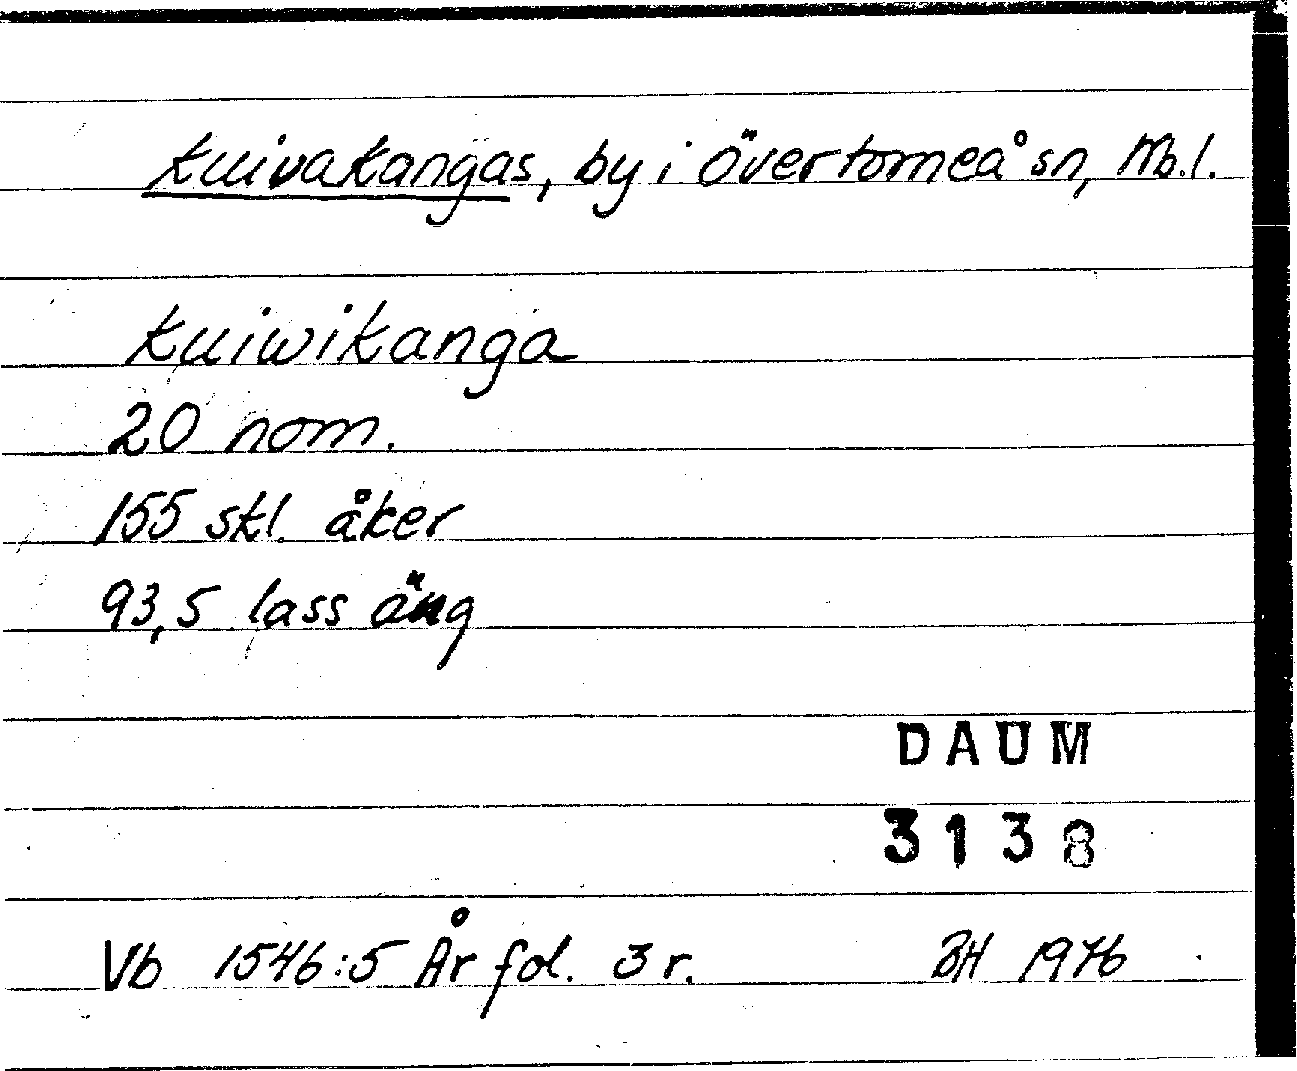 Kuivakangas, by i Övertorneå sn, Nb.l.
Kuiwikanga
20 nom.
155 skl. åker
93,5 lass äng
DAUM
3138
Vb 1546:5 År fol. 3 r. BH 1976